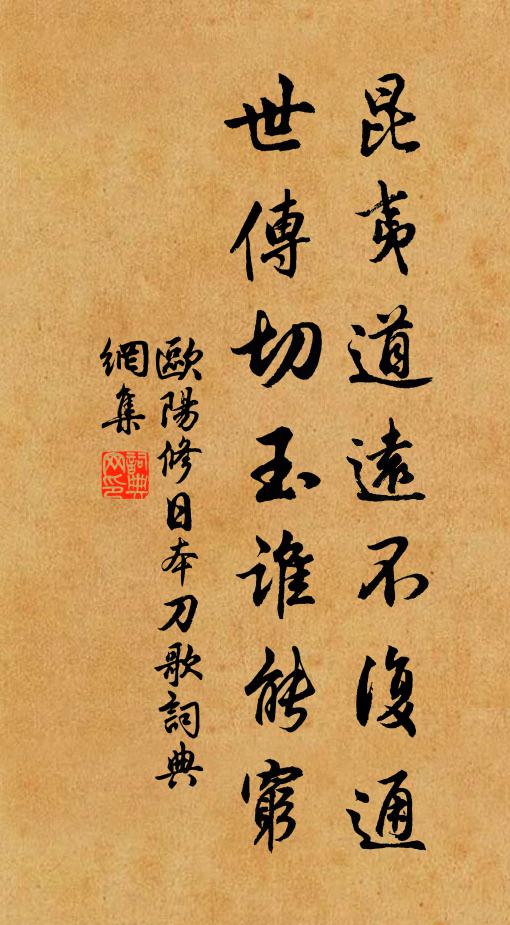 昆夷道遠不復通
世傳切玉誰能窮
歐陽修日本刀歌詞典
網集
詞典
网印